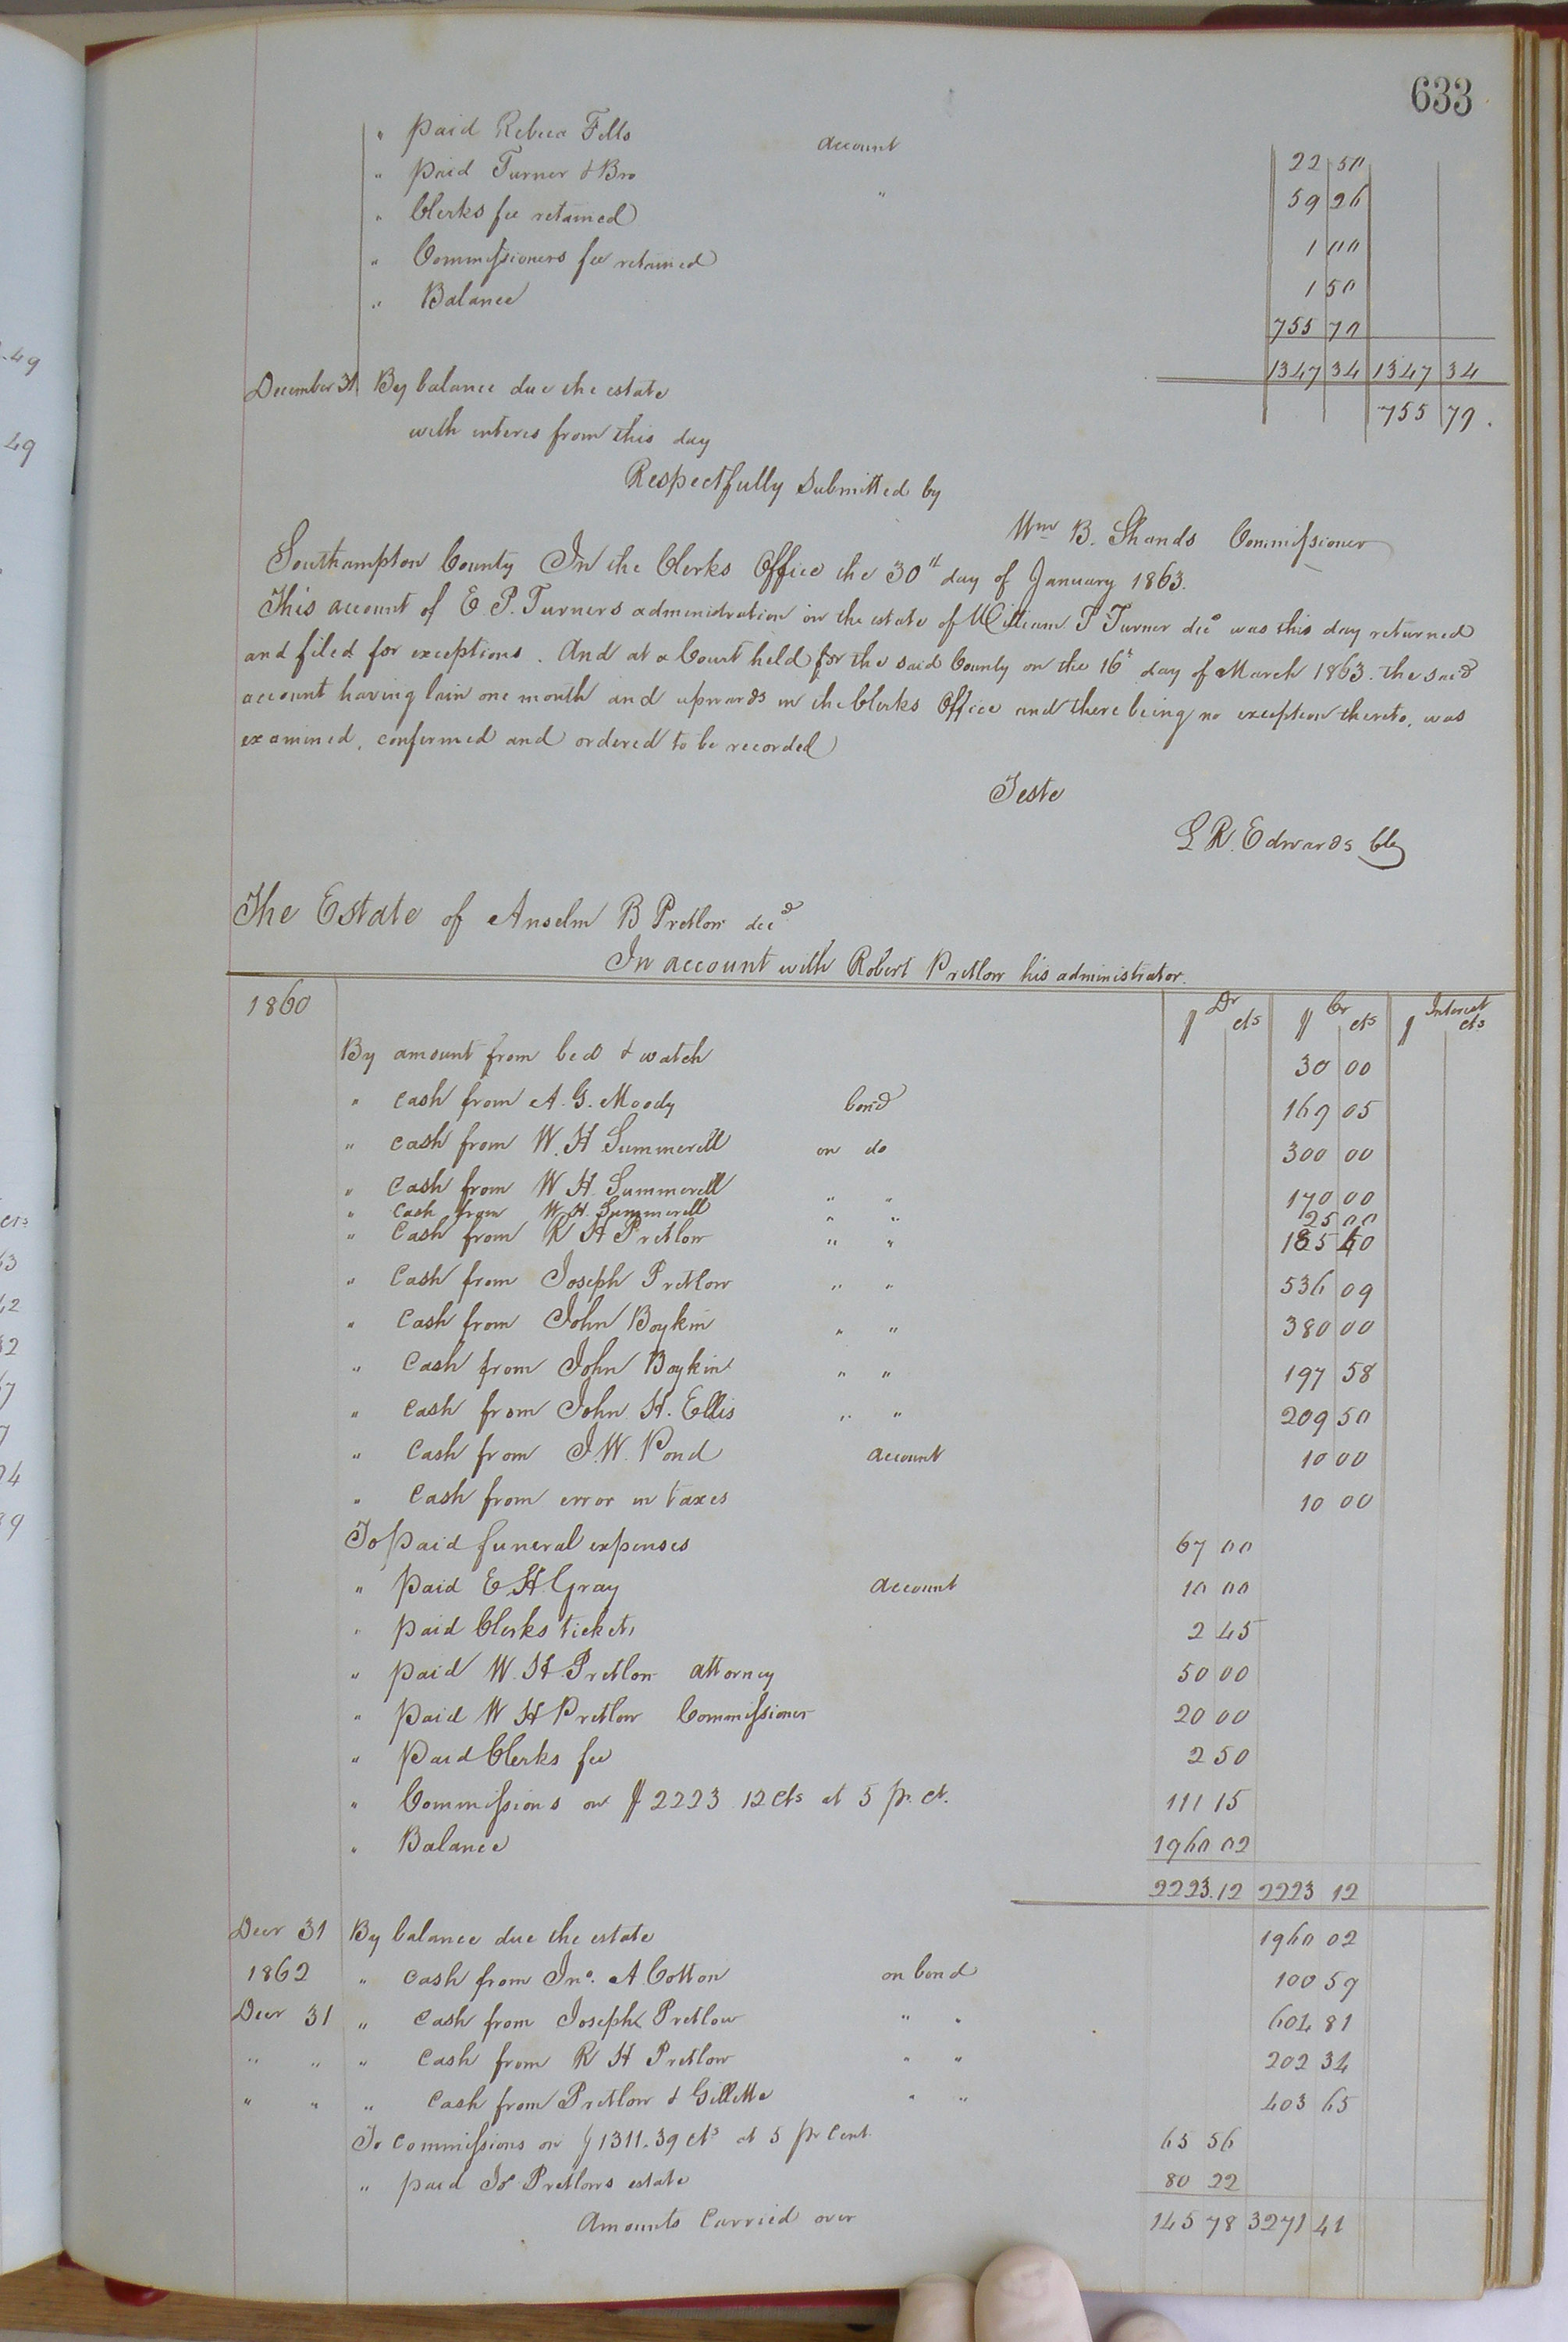 633
" paid Rebeca Fells account 22 50
" paid Turner & Bro " 59 26
" Clerks fee retained 1 00
" Commissioners fee retained 1 50
" Balance 755 70
1347 34 1347 34
December 31 By balance due the estate 755 70.
with interes from this day
Respectfully submitted by
Wm B. Shands Commissioner
Southampton County In the Clerks Office the 30th day of January 1863.
This account of E P. Turners administration on the estate of William P Turner decd was this day returned
and filed for exceptions. And at a Court held for the said County on the 16th day of March 1863. the said
account having lain one month and upwards in the Clerks Office and there being no exception thereto, was
examined, confirmed and ordered to be recorded
Teste
L R. Edwards Clk
The Estate of Anselm B Pretlow decd
In account with Robert Pretlow his administrator.
1860 $ Dr cts $ Cr cts $ Interest cts
By amount from bed & watch 30 00
" cash from A. G. Moody bond 169 05
" cash from W. H Summerell on do 300 00
" Cash from W H. Summerell " " 170 00
" Cash from W. H. Summerell " " 25 00
" Cash from R H Pretlow " " 185 60
" Cash from Joseph Pretlow " " 536 09
" Cash from John Boykin " " 380 00
" Cash from John Boykin " " 197 58
" Cash from John H. Ellis " " 209 50
" Cash from J. W. Pond account 10 00
" Cash from error in taxes 10 00
To paid funeral expenses 67 00
" paid E. H. Gray account 10 00
" paid Clerks tickets 2 45
" paid W. H. Pretlow attorney 50 00
" paid W H Pretlow Commissioner 20 00
" Paid Clerks fee 2 50
" Commissions on $2223 12 cts at 5 pr. ct. 111 15
" Balance 1960 02
2223.12 2223 12
Decr 31 By balance due the estate 1960 02
1862 " cash from Jno. A Cotton on bond 100 59
Decr 31 " cash from Joseph Pretlow " " 604 81
" " " Cash from R H Pretlow " " 202 34
" " " Cash from Pretlow & Gillette " " 403 65
To commissions on $1311.39 cts at 5 pr Cent. 65 56
" paid Jos Pretlows estate 80 22
Amounts Carried over 145 78 3271 41